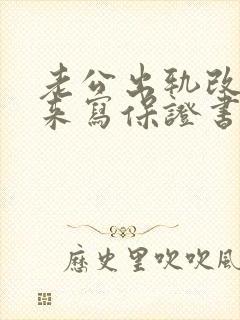 老公出軌改
来寫保證書
歷史里吹吹風